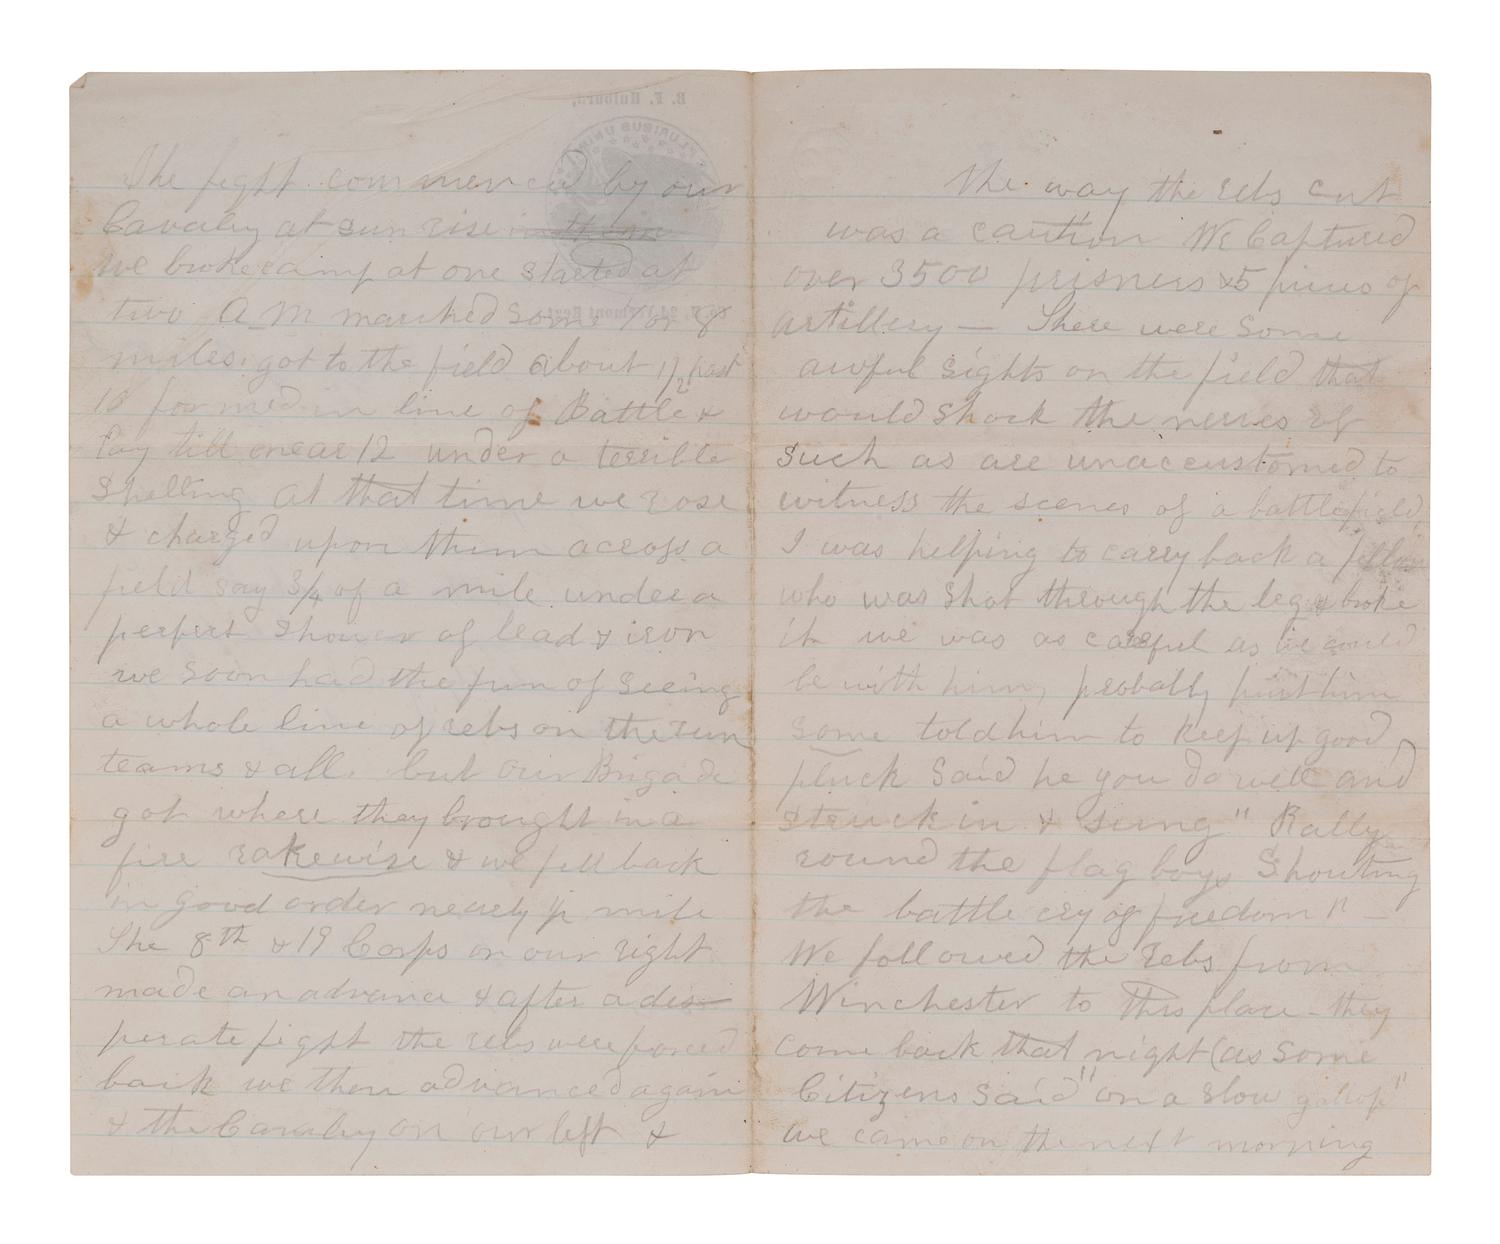 The fight commenced by our
Cavalry at sun rise in them
we broke camp at one started at
two A.M marched some 7 or 8
miles. got to the field about 1/2 past
10 formed in line of Battle &
lay till near 12 under a terrible
shelling at that time we rose
& charged upon them across a
field say 3/4 of a mile under a
perfect shower of lead & iron
we soon had the fun of seeing
a whole line of rebs on the run
teams & all. but our Brigade
got where they brought in a
fire rakewise & we fell back
in good order nearly 1/2 mile
The 8th & 19 Corps on our right
made an advance & after a des-
perate fight the rebs were forced
back we then advanced again
& the Cavalry on our left &
The way the rebs cut
was a caution We Captured
over 3500 prisners & 5 pieces of
artillery — There were some
awful sights on the field that
would shock the nerves of
such as are unaccustomed to
witness the scenes of a battlefield
I was helping to carry back a fellow
who was shot through the leg & broke
it we was as careful as we could
be with him, probably hurt him
some told him to keep up good
pluck said he you do well and
struck in & sung " Rally
round the flag boys Shouting
the battle cry of freedom " —
We followed the rebs from
Winchester to this place - they
come back that night (as some
Citizens said "on a slow gallop"
we came on the next morning
B. F. Hulburd,
E PLURIBUS UNUM
Vermont Regt.